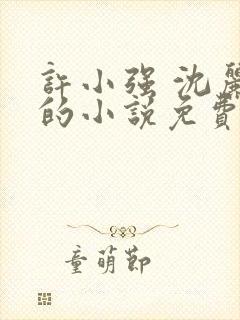 許小强 沈麗
的小說免費
童萌節